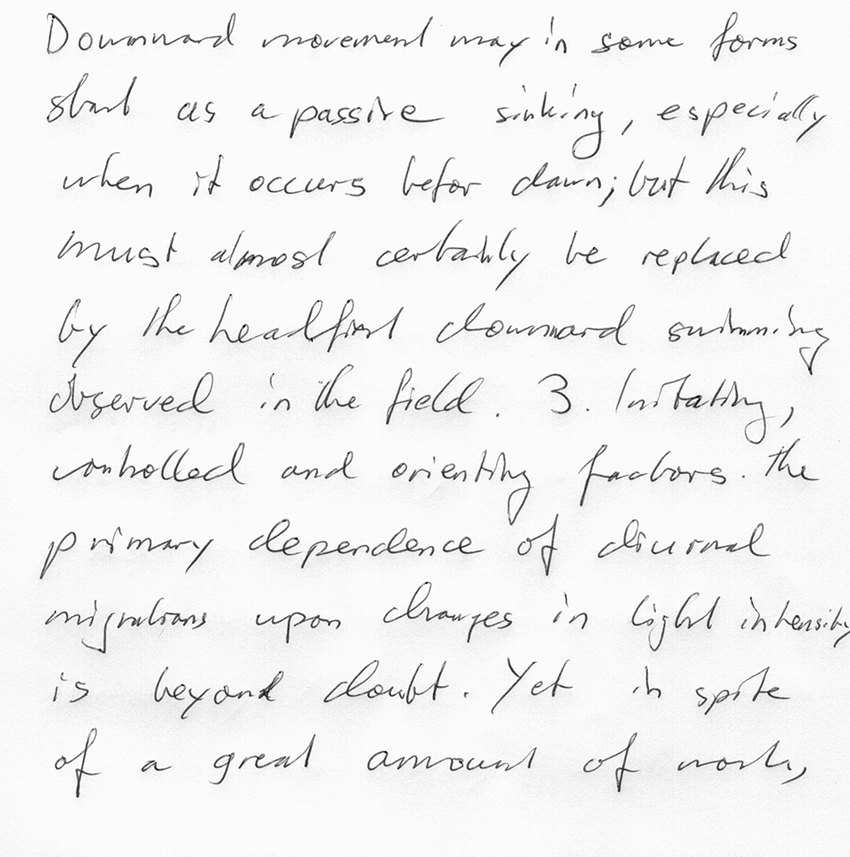 Downward movement may in some forms
start as a passive sinking, especially
when it occurs befor dawn; but this
must almost certainly be replaced
by the headfirst downward swimming
observed in the field. 3. Initating,
controlled and orienting factors. the
primary dependence of diurnal
migrations upon changes in light intensity
is beyond doubt. Yet in spite
of a great amount of work,